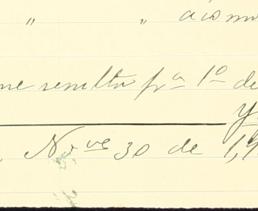 " " 
me resulta pª 1º de
y
Nove 30 de 1,9